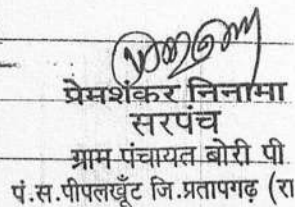 प्रेमशंकर निनामा
सरपंच
ग्राम पंचायत बोरी पी
पं.स.पीपलखूँट जि.प्रतापगढ़ (रा